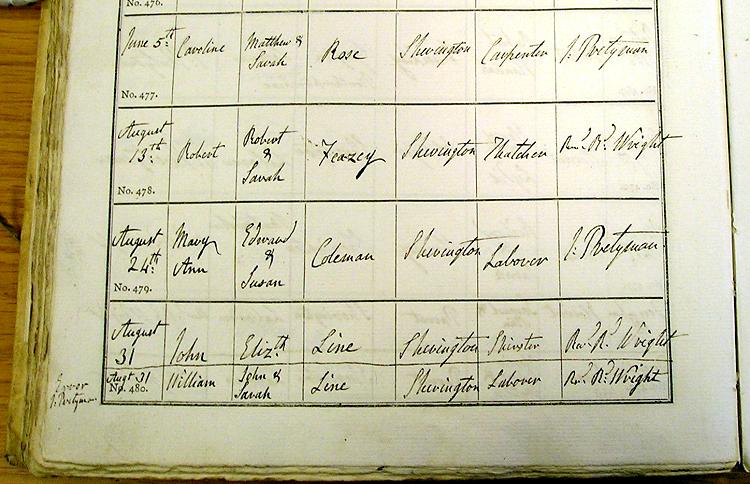 No. 476.
June 5th Caroline Matthew & Sarah Rose Shevington Carpenter J. Pretyman
No. 477.
August 13th Robert Robert & Sarah Feazey Shevington Thatcher Revd. Rd. Wright
No. 478.
August 24th Mary Ann Edward & Susan Coleman Shevington Labourer J. Pretyman
No. 479.
August 31 John Elizth Line Shevington Spinster Revd. Rd. Wright
Augt 31 William John & Sarah Line Shevington Labourer Revd. Rd. Wright
No. 480.
Error
J. Pretyman